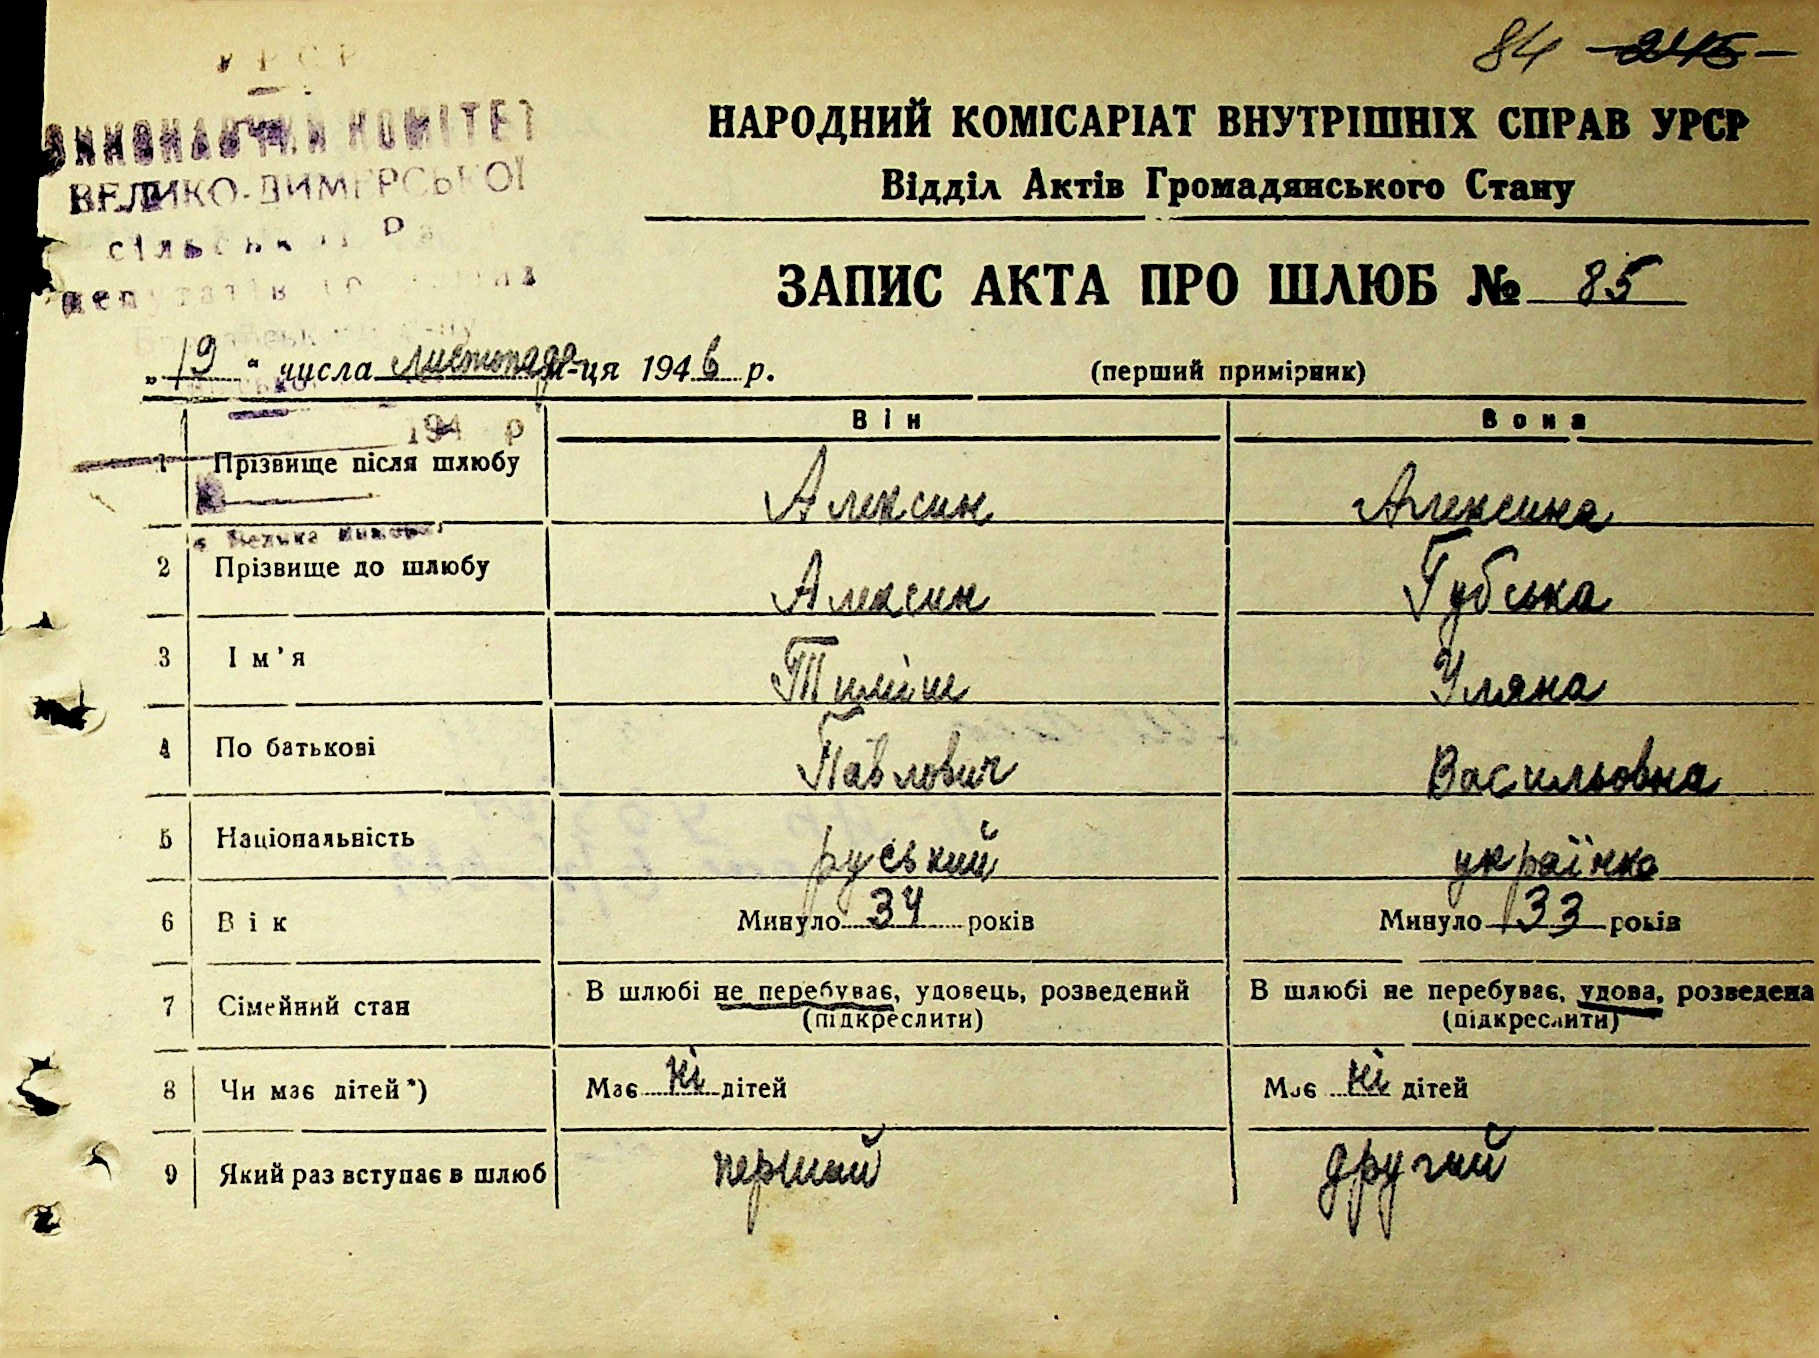 84 245
УРСР
ВИКОНАВЧИЙ КОМІТЕТ
ВЕЛИКО-ДИМЕРСЬКОЇ
НАРОДНИЙ КОМІСАРІАТ ВНУТРІШНІХ СПРАВ УРСР
Відділ Актів Громадянського Стану
ЗАПИС АКТА ПРО ШЛЮБ № 85
„19“ числа листопада м-ця 1946 р. (перший примірник)
194 р
Він Вона
1 Прізвище після шлюбу Алексин Алексина
с Велика Димерка
2 Прізвище до шлюбу Алексин Губська
3 Ім'я Тиміш Уляна
4 По батькові Павлович Васильовна
5 Національність руський українка
6 Вік Минуло 34 років Минуло 33 років
7 Сімейний стан В шлюбі не перебуває, удовець, розведений В шлюбі не перебуває, удова, розведена
(підкреслити) (підкреслити)
8 Чи має дітей*) Має ні дітей Має ні дітей
9 Який раз вступає в шлюб перший другий